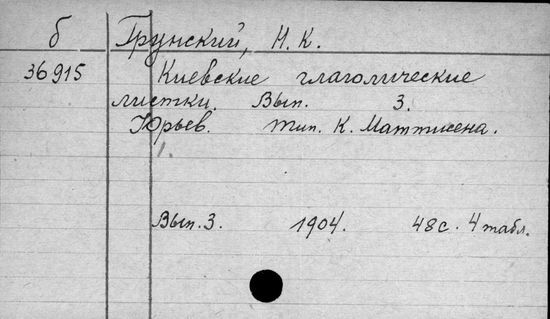 б Грунский, Н. К.
36915 Киевские глаголические
листки. Вып. 3.
Юрьев. тип. К. Маттисена.
Вып. 3. 1904. 48 с. 4 табл.